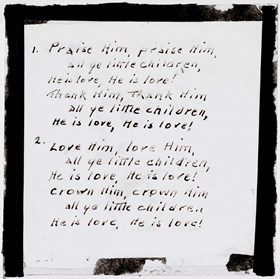 1. Praise Him, praise Him,
all ye little children,
He is love, He is love!
Thank Him, Thank Him
all ye little children,
He is love, He is love!
2.
Love Him, love Him,
all ye little children,
He is love, He is love!
Crown Him, crown Him
all ye little children
He is love, He is love!